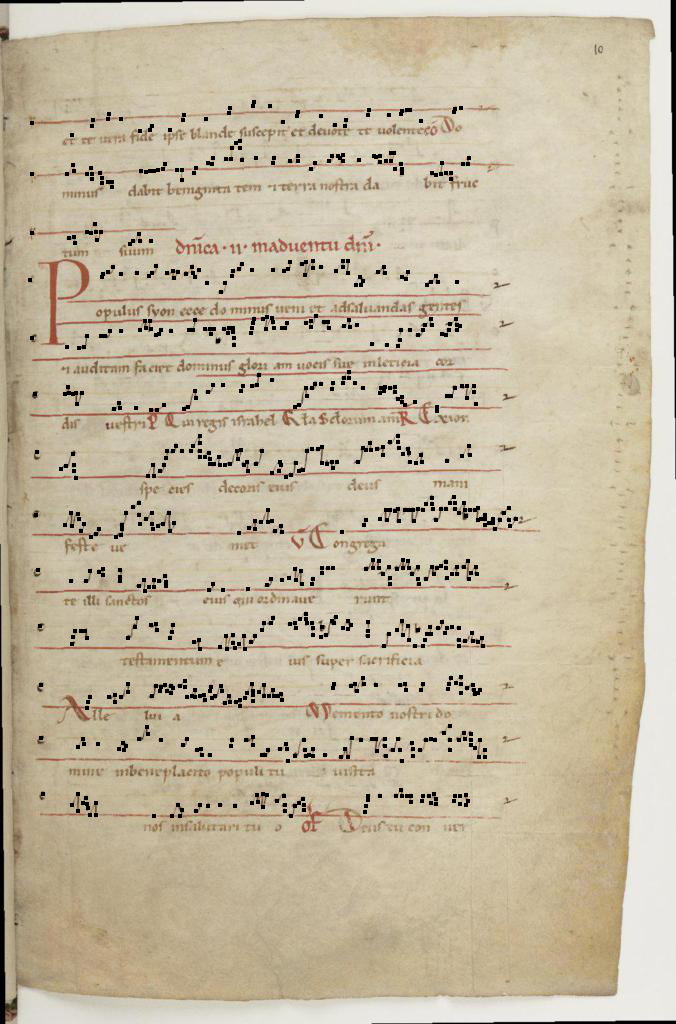 10
et te vera fide ipse blande suscepit et devote te volentes Co Do
minus dabit benignita tem ⁊ terra nostra da bit fruc
tum suum dñica · ii · in adventu dñi ·
Populus syon ecce do minus veni et ad salvandas gentes
⁊ auditam faciet dominus glori am vocis sue in leticia cor
dis vestri P Qui regis israhel Gla Seclorum am R Ex sion
spe cies decoris eius deus mani
feste ve niet V Congrega
te illi sanctos eius qui ordinave runt
testamentum e ius super sacrificia
Alle lui a Memento nostri do
mine in beneplacito populi tu i visita
nos in salutari tu o of Deus tu con ver